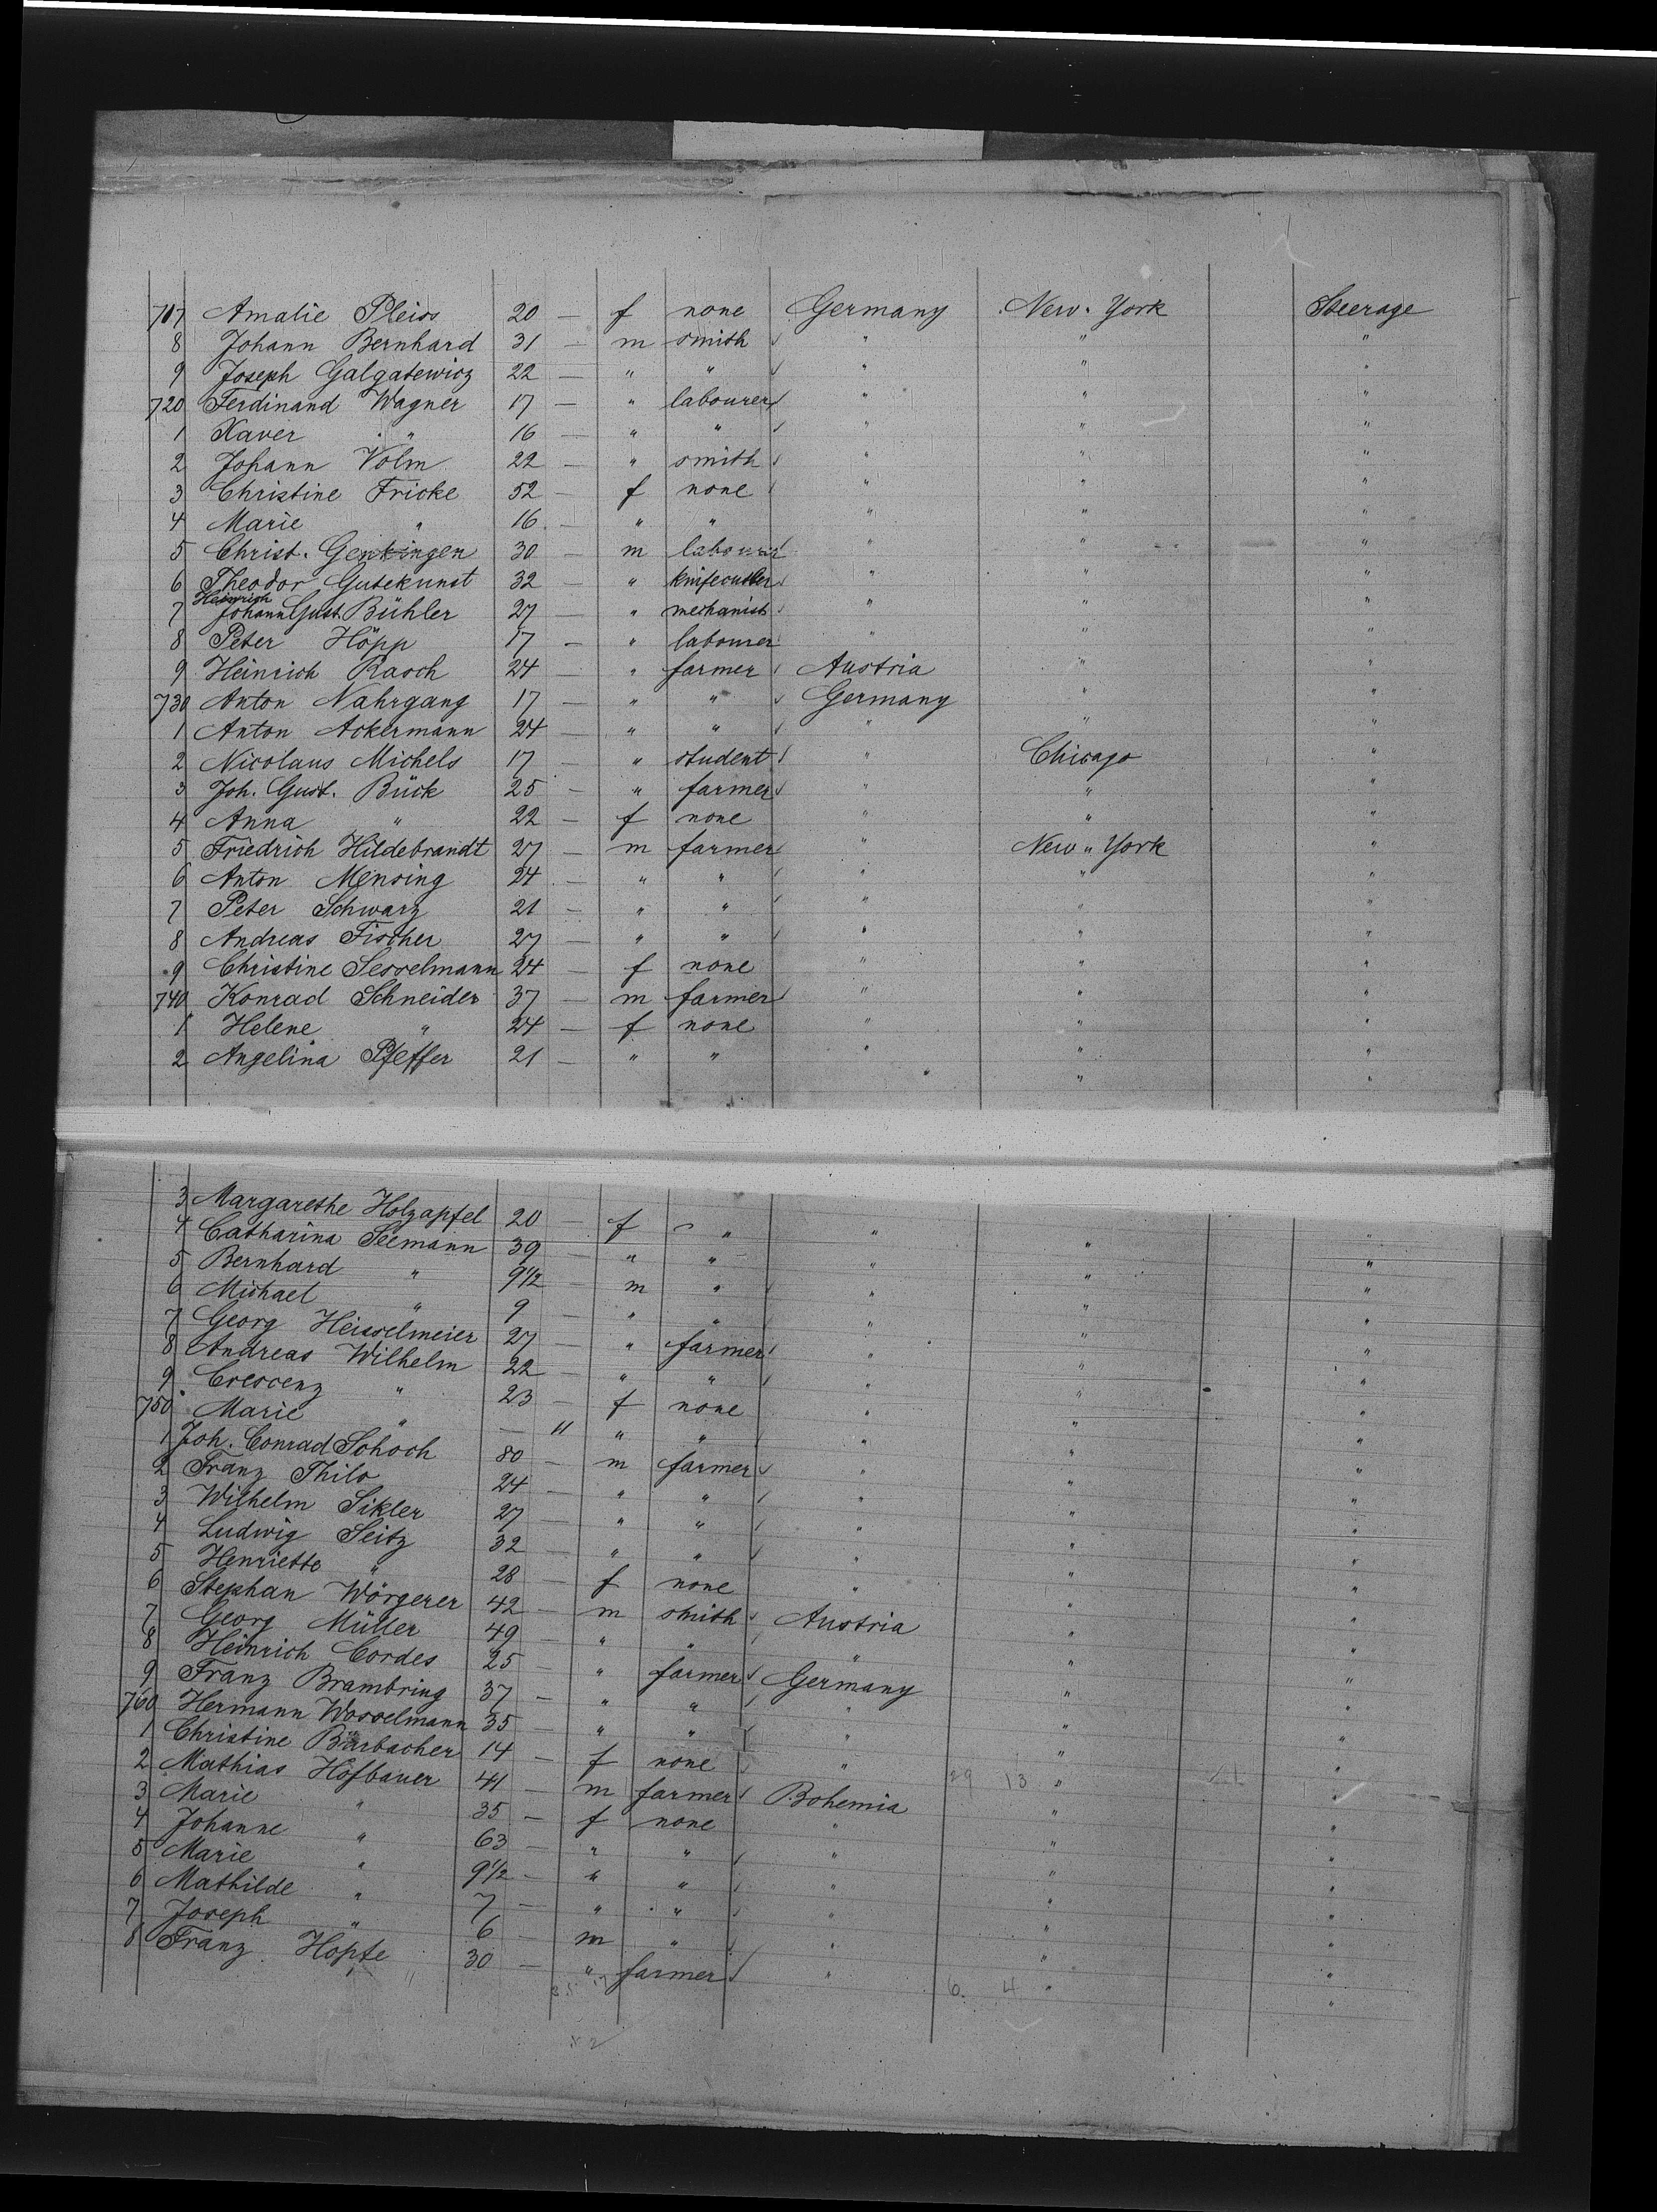 717 Amalie Pleiss 20 — f none Germany New-York Steerage
8 Johann Bernhard 31 — m smith " " "
9 Joseph Galgatewicz 22 — " " " " "
720 Ferdinand Wagner 17 — " labourer " " "
1 Xaver " 16 — " " " " "
2 Johann Volm 22 — " smith " " "
3 Christine Fricke 52 — f none " " "
4 Marie " 16 — " " " " "
5 Christ. Genkingen 30 — m labourer " " "
6 Theodor Gutekunst 32 — " knifecutler " " "
7 Heinrich Johann Gust. Bühler 27 — " mechanist " " "
8 Peter Höpp 17 — " labourer " " "
9 Heinrich Rasch 24 — " farmer Austria " "
730 Anton Nahrgang 17 — " " Germany " "
1 Anton Ackermann 24 — " " " " "
2 Nicolaus Michels 17 — " student " Chicago "
3 Joh. Gust. Bück 25 — " farmer " " "
4 Anna " 22 — f none " " "
5 Friedrich Hildebrandt 27 — m farmer " New-York "
6 Anton Mensing 24 — " " " " "
7 Peter Schwarz 21 — " " " " "
8 Andreas Fischer 27 — " " " " "
9 Christine Sesselmann 24 — f none " " "
740 Konrad Schneider 37 — m farmer " " "
1 Helene " 24 — f none " " "
2 Angelina Pfeffer 21 — " " " " "
3 Margarethe Holzapfel 20 — f " " " "
4 Catharina Seemann 39 — " " " " "
5 Bernhard " 9 1/2 — m " " " "
6 Michael " 9 — " " " " "
7 Georg Heisselmeier 27 — " farmer " " "
8 Andreas Wilhelm 22 — " " " " "
9 Crescenz " 23 — f none " " "
750 Marie " — 11 " " " " "
1 Joh. Conrad Schoch 80 — m farmer " " "
2 Franz Thilo 24 — " " " " "
3 Wilhelm Sikler 27 — " " " " "
4 Ludwig Seitz 32 — " " " " "
5 Henriette " 28 — f none " " "
6 Stephan Wörgerer 42 — m smith Austria " "
7 Georg Müller 49 — " " " " "
8 Heinrich Cordes 25 — " farmer Germany " "
9 Franz Brambring 37 — " " " " "
760 Hermann Wosselmann 35 — " " " " "
1 Christine Bürbacher 14 — f none " " "
2 Mathias Hofbauer 41 — m farmer Bohemia 29 13 " "
3 Marie " 35 — f none " " "
4 Johanne " 63 — " " " " "
5 Marie " 9 1/2 — " " " " "
6 Mathilde " 7 — " " " " "
7 Joseph " 6 — m " " " "
8 Franz Hopfe 30 — " farmer " 6. 4 " "